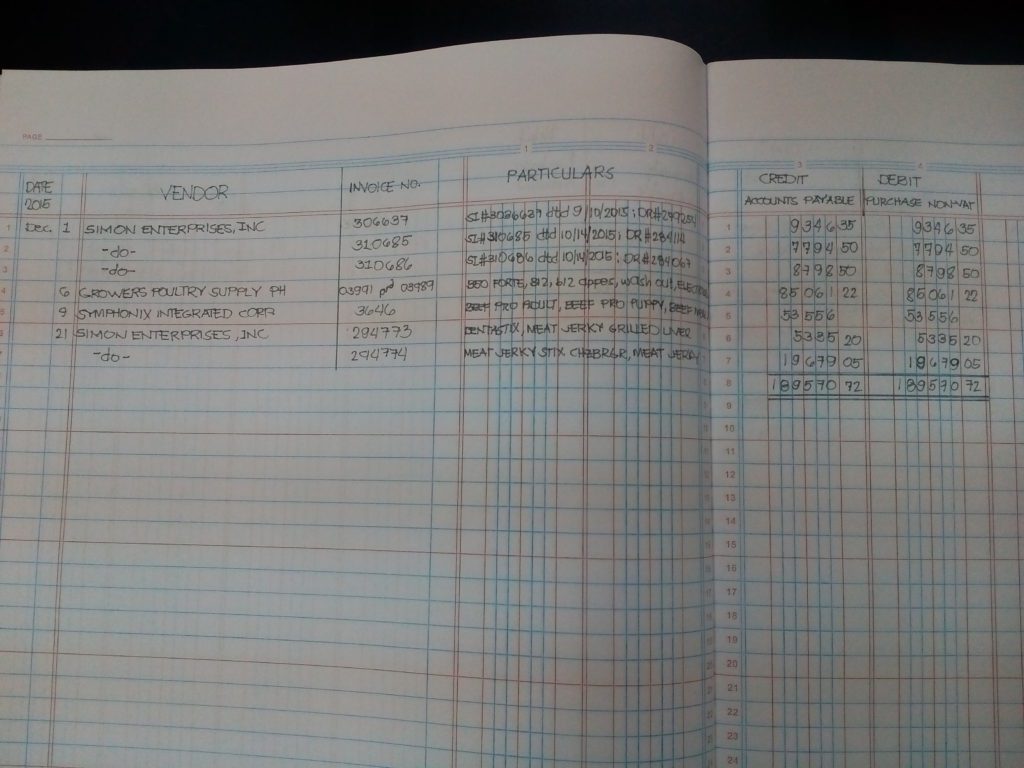 PAGE
1 2
3 4
DATE 2015 VENDOR INVOICE NO. PARTICULARS CREDIT ACCOUNTS PAYABLE DEBIT PURCHASE NON-VAT
1 Dec. 1 SIMON ENTERPRISES, INC 306637 dtd 9/10/2015; 1 9346 35 9346 35
2 -do- 310685 SI#310685 dtd 10/14/2015; DR#284114 2 7794 50 7794 50
3 -do- 310686 SI#310686 dtd 10/14/2015; DR#284067 3 8798 50 8798 50
4 6 GROWERS POULTRY SUPPLY PH 03991 03989 FORTE, B12, wash out, 4 85061 22 85061 22
5 9 SYMPHONIX INTEGRATED CORP 3646 BEEF PRO ADULT, BEEF PRO PUPPY, BEEF 5 53556 53556
6 21 SIMON ENTERPRISES, INC 294773 DENTASTIX, MEAT JERKY GRILLED LIVER 6 5335 20 5335 20
7 -do- 294774 MEAT JERKY STIX CHZBRGR, MEAT JERKY 7 19679 05 19679 05
8 189570 72 189570 72
9
10
11
12
13
14
15
16
17
18
19
20
21
22
23
24